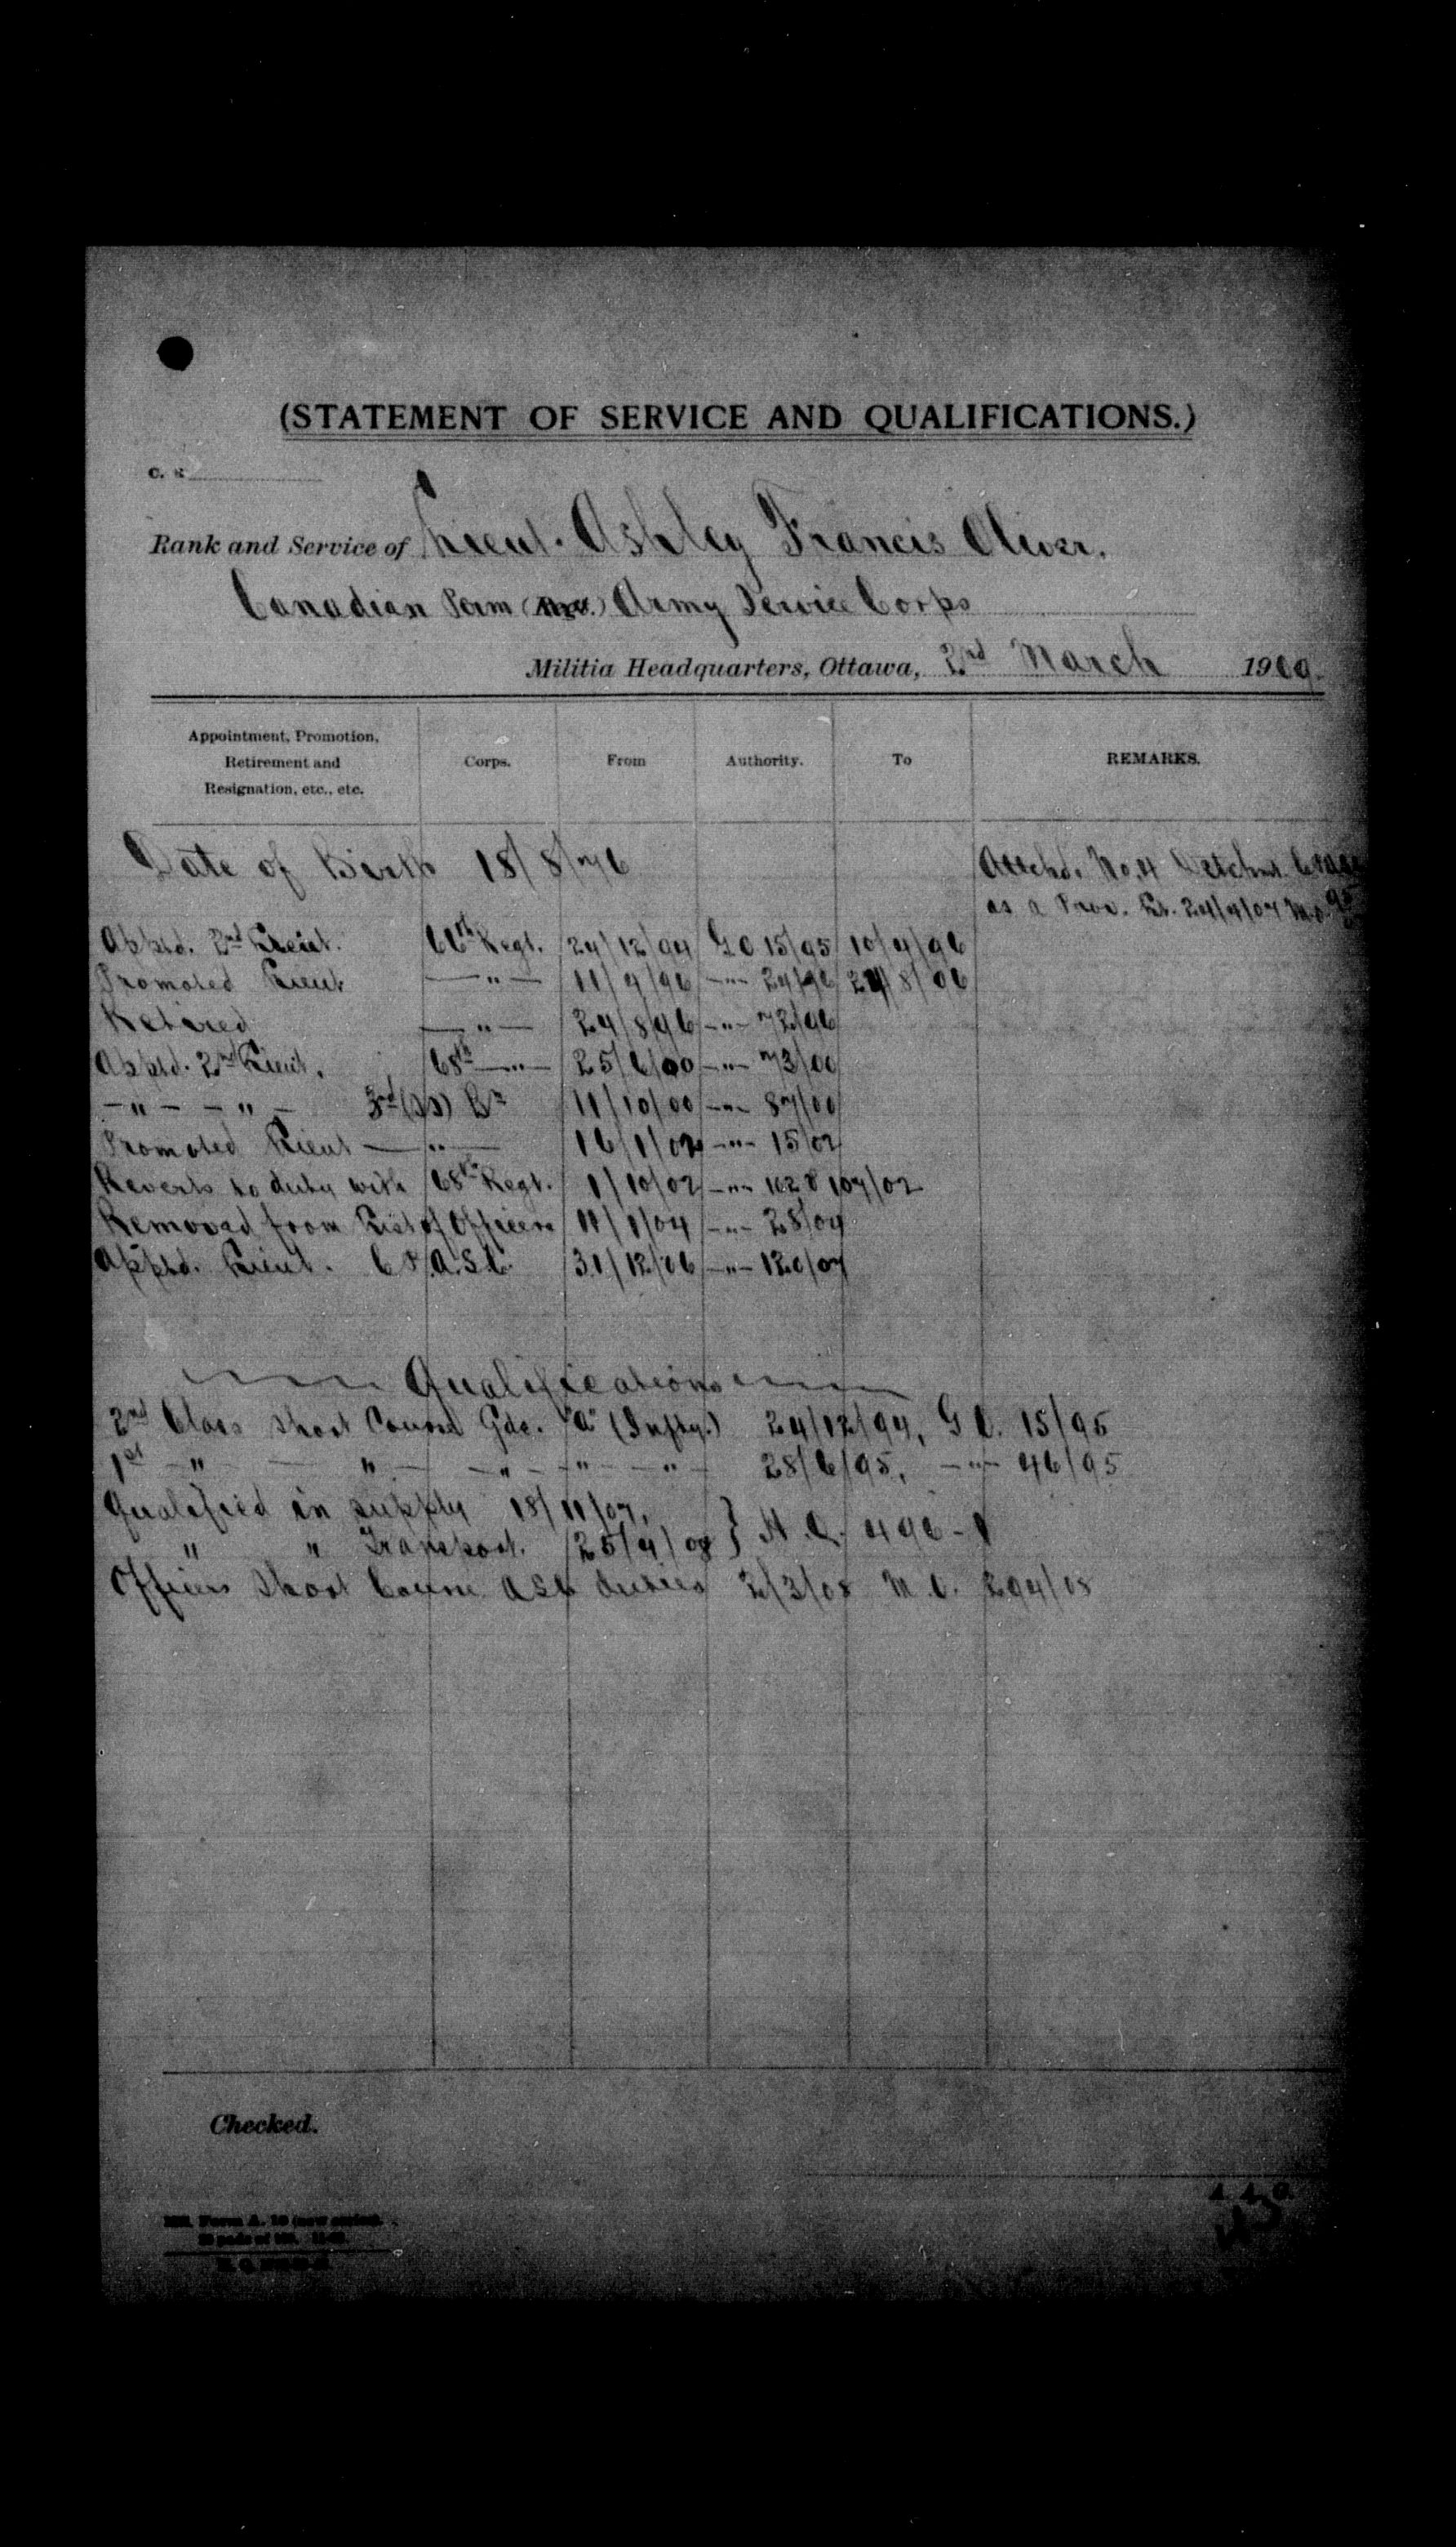 (STATEMENT OF SERVICE AND QUALIFICATIONS.)
C. R
Rank and Service of Lieut. Ashley Francis Oliver.
Canadian Perm Army Service Corps
Militia Headquarters, Ottawa, 2nd March 1909.
Appointment, Promotion, Retirement and Resignation, etc., etc. Corps. From Authority. To REMARKS.
Date of Birth 18/8/76
Attchd. No. 4 Detchmt.
as a Prov. Lt. 24/4/07 M.O.
Apptd. 2nd Lieut. 66th Regt. 24/12/94 G O 15/95 10/4/96
Promoted Lieut — " — 11/4/96 — " — 24/96 24/8/06
Retired — " — 24/8/96 — " — 72/96
Apptd. 2nd Lieut. 68th — " — 25/6/00 — " — 73/00
— " — — " — 3rd (SS) Bn 11/10/00 — " — 87/00
Promoted Lieut — " — 16/1/02 — " — 15/02
Reverts to duty with 68th Regt. 1/10/02 — " — 162 & 107/02
Removed from List of Officers 11/1/04 — " — 28/04
Apptd. Lieut. C P.A.S.C. 31/12/06 — " — 120/07
Qualifications
2nd Class Short Course Gde. "A" (Infty.) 24/12/94, G O. 15/95
1st — " — " — " — " — " — 28/6/95, — " — 46/95
Qualified in supply 18/11/07,
" " Transport. 25/4/08 } H. Q. 496-1
Officers Short Course ASC duties 2/3/08 M.O. 294/08
Checked.